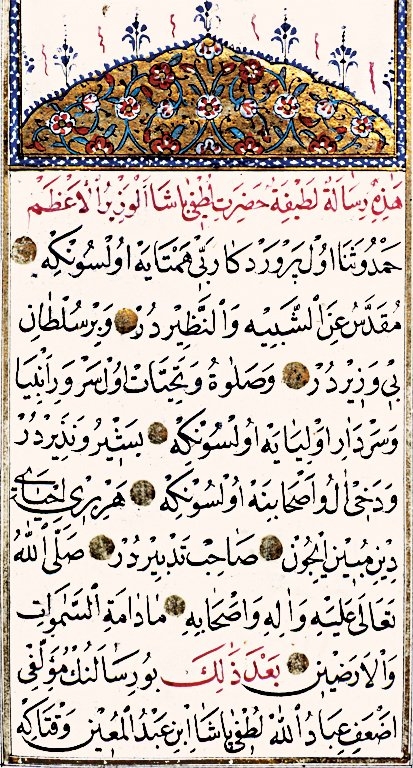 هذه رسالة لطيفة حضرت لطفي پاشا الوزير الاعظم
حمد و ثنا اول پروردكار بي همتايه اولسونكه
مقدس عن الشبيه والنظير در و بر سلطان
بي وزير در و صلوة و تحيات اول سرور انبيا
و سردار اوليايه اولسونكه بشير و نذير در
و دخي ال و اصحابنه اولسونكه هر بري احياي
دين مبين ايچون صاحب تدبير در صلى الله
تعالى عليه و اله و اصحابه ما دامة السموات
والارضين بعد ذلك بو رسالنك مؤلفي
اضعف عباد الله لطفي پاشا ابن عبد المعين وقتاكه